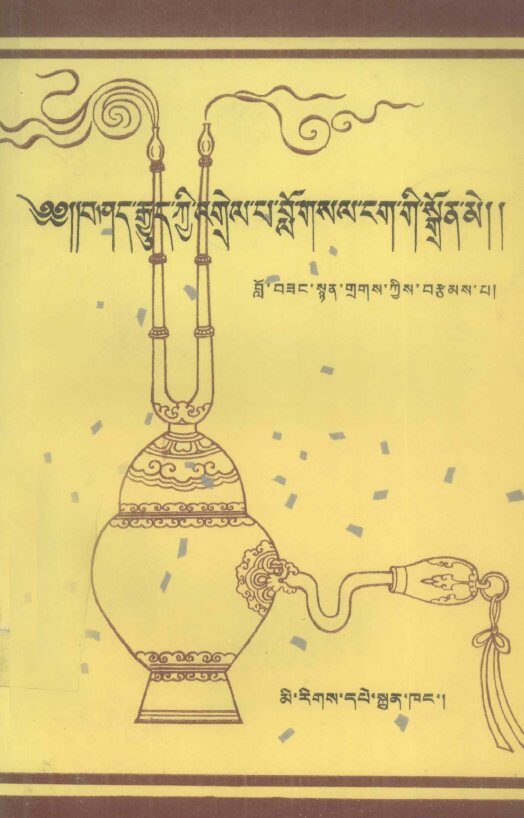 ༄༅།།བཤད་རྒྱུད་ཀྱི་འགྲེལ་པ་བློ་གསལ་ངག་གི་སྒྲོན་མེ།།
བློ་བཟང་སྙན་གྲགས་ཀྱིས་བརྩམས་པ།
མི་རིགས་དཔེ་སྐྲུན་ཁང་།